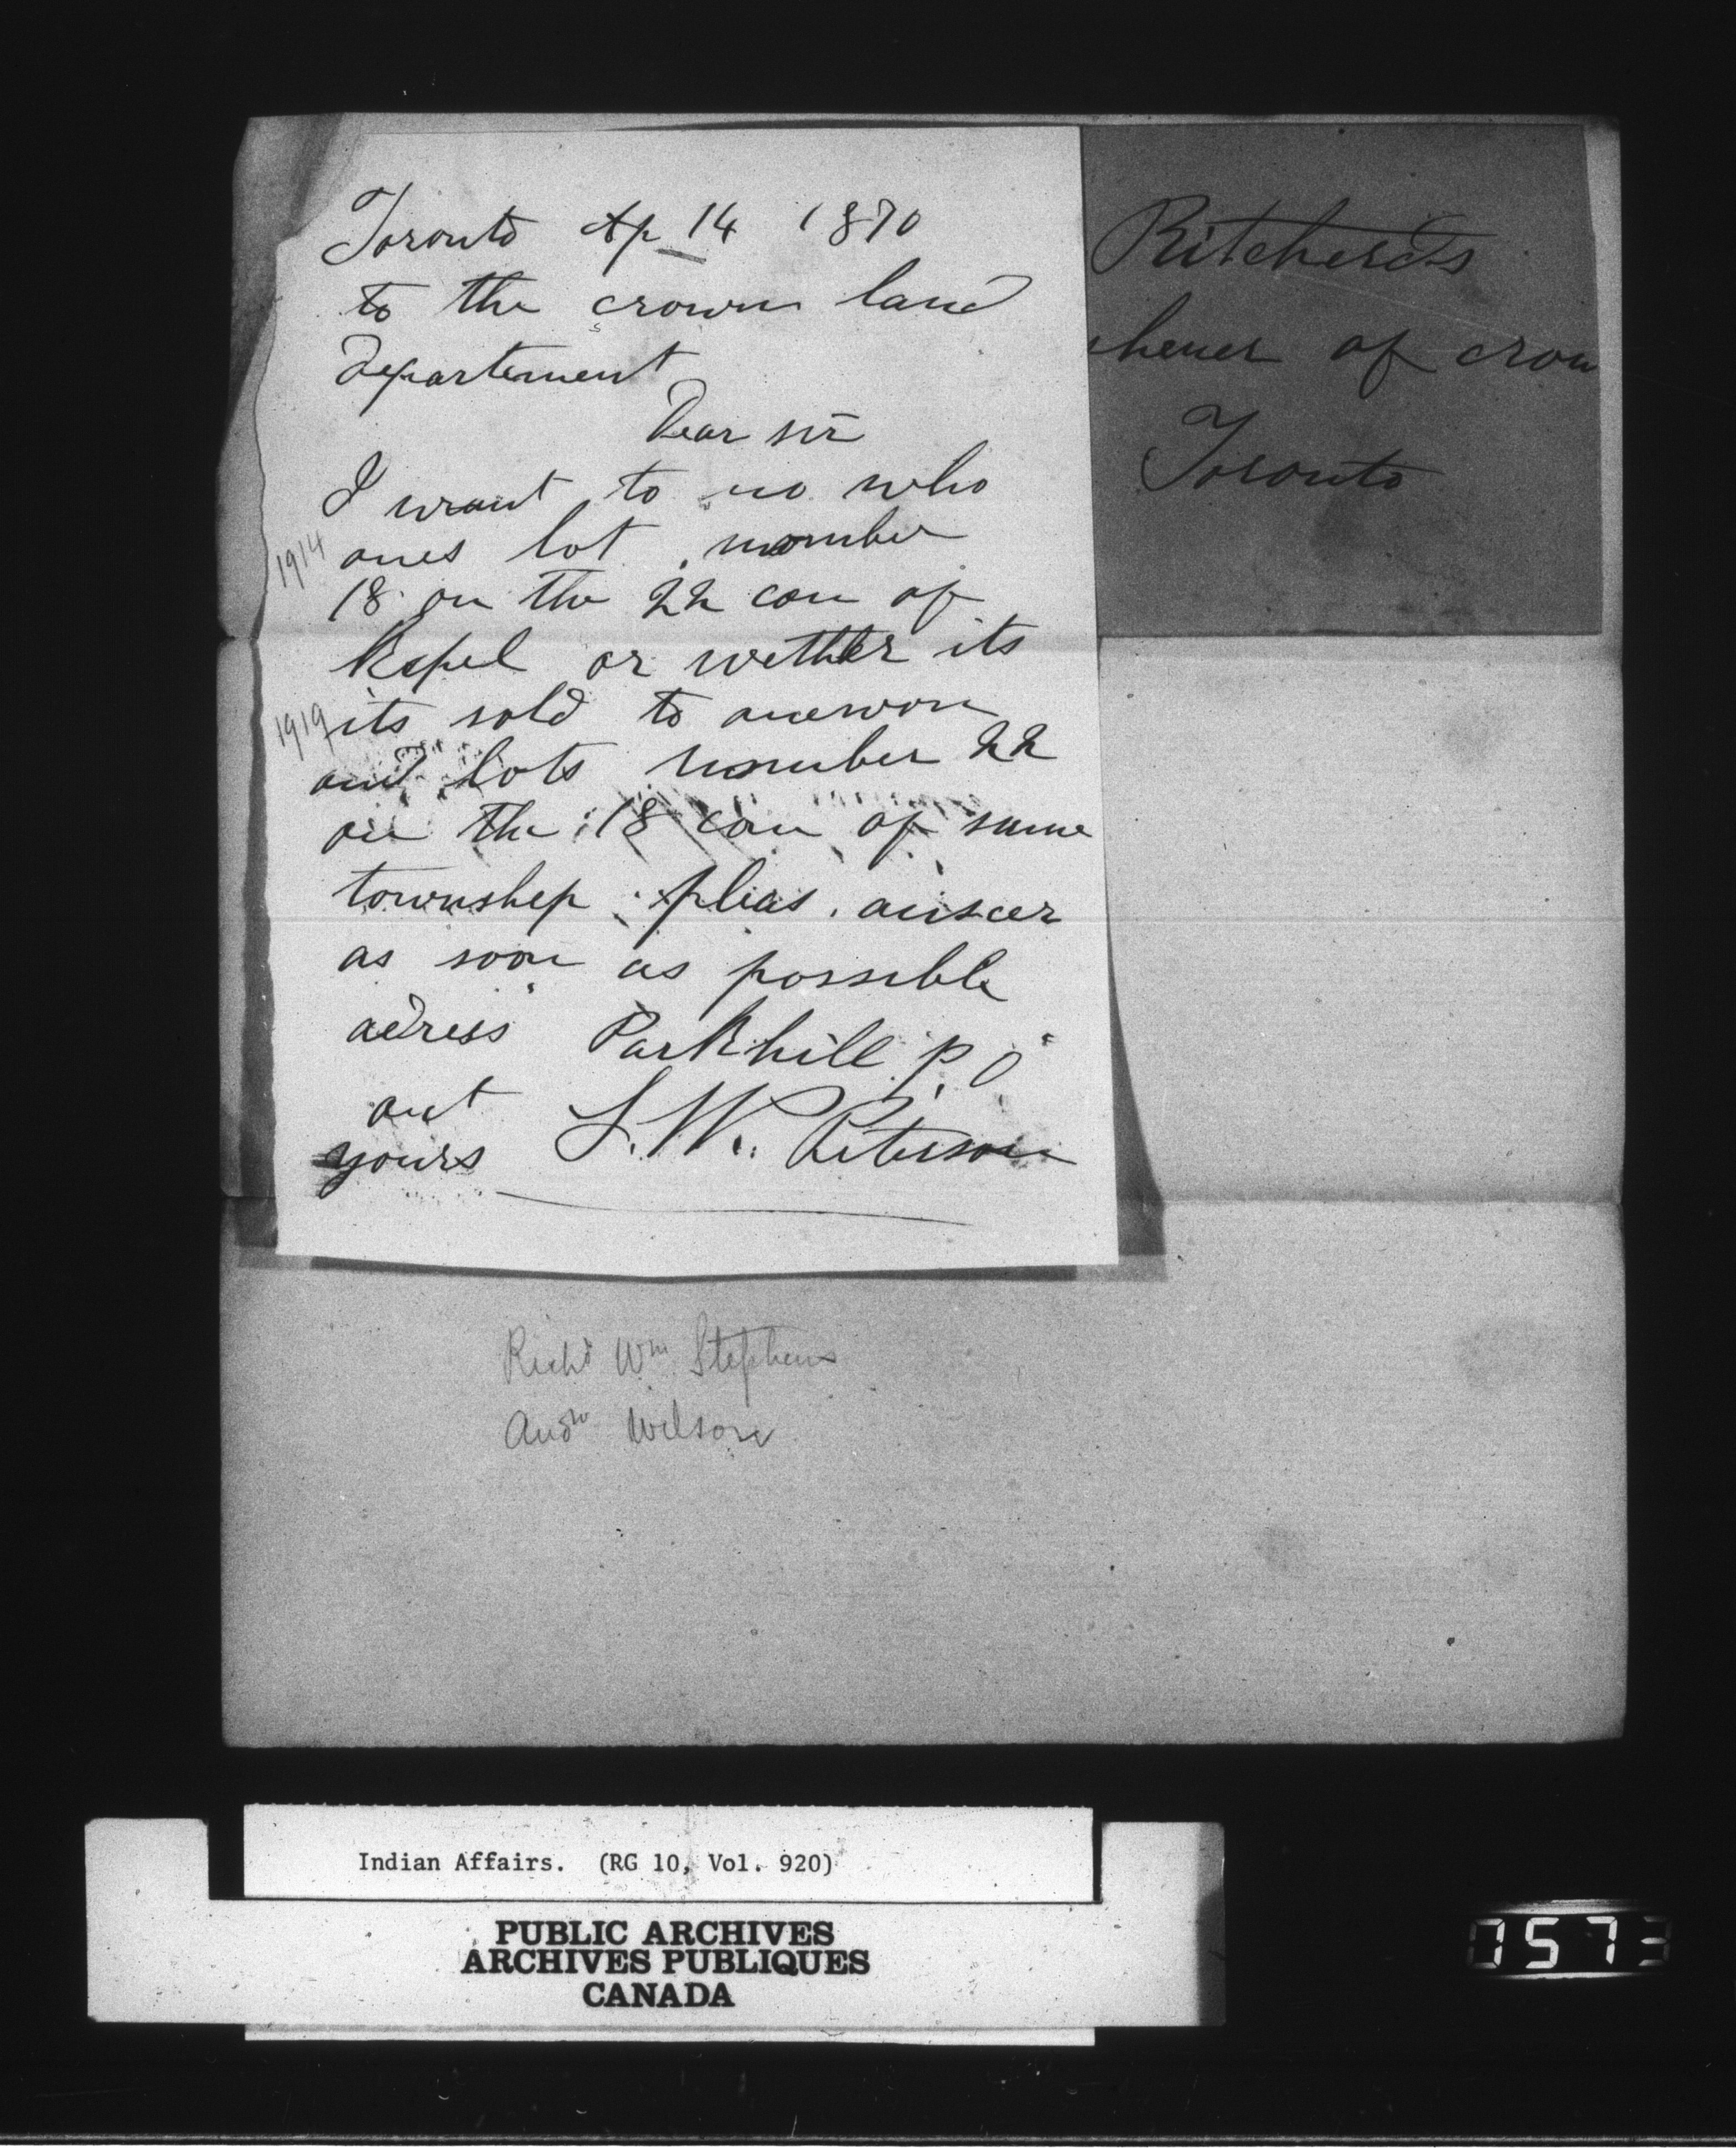 Toronto Ap 14 1870
to the crown land
Departement
Dear sir
I want to no who
1914 ones lot number
18 on the 22 con of
Kepel or wether its
1919 its sold to anewon
and lots number 22
on the 18 con of same
township pleas anser
as soon as possible
adress Parkhill P.O
ont
yours S.W. Peterson
Ritcherds
of crow
Toronto
Richd Wm Stephens
Andw Wilson
Indian Affairs. (RG 10, Vol. 920)
PUBLIC ARCHIVES
ARCHIVES PUBLIQUES
CANADA
1573